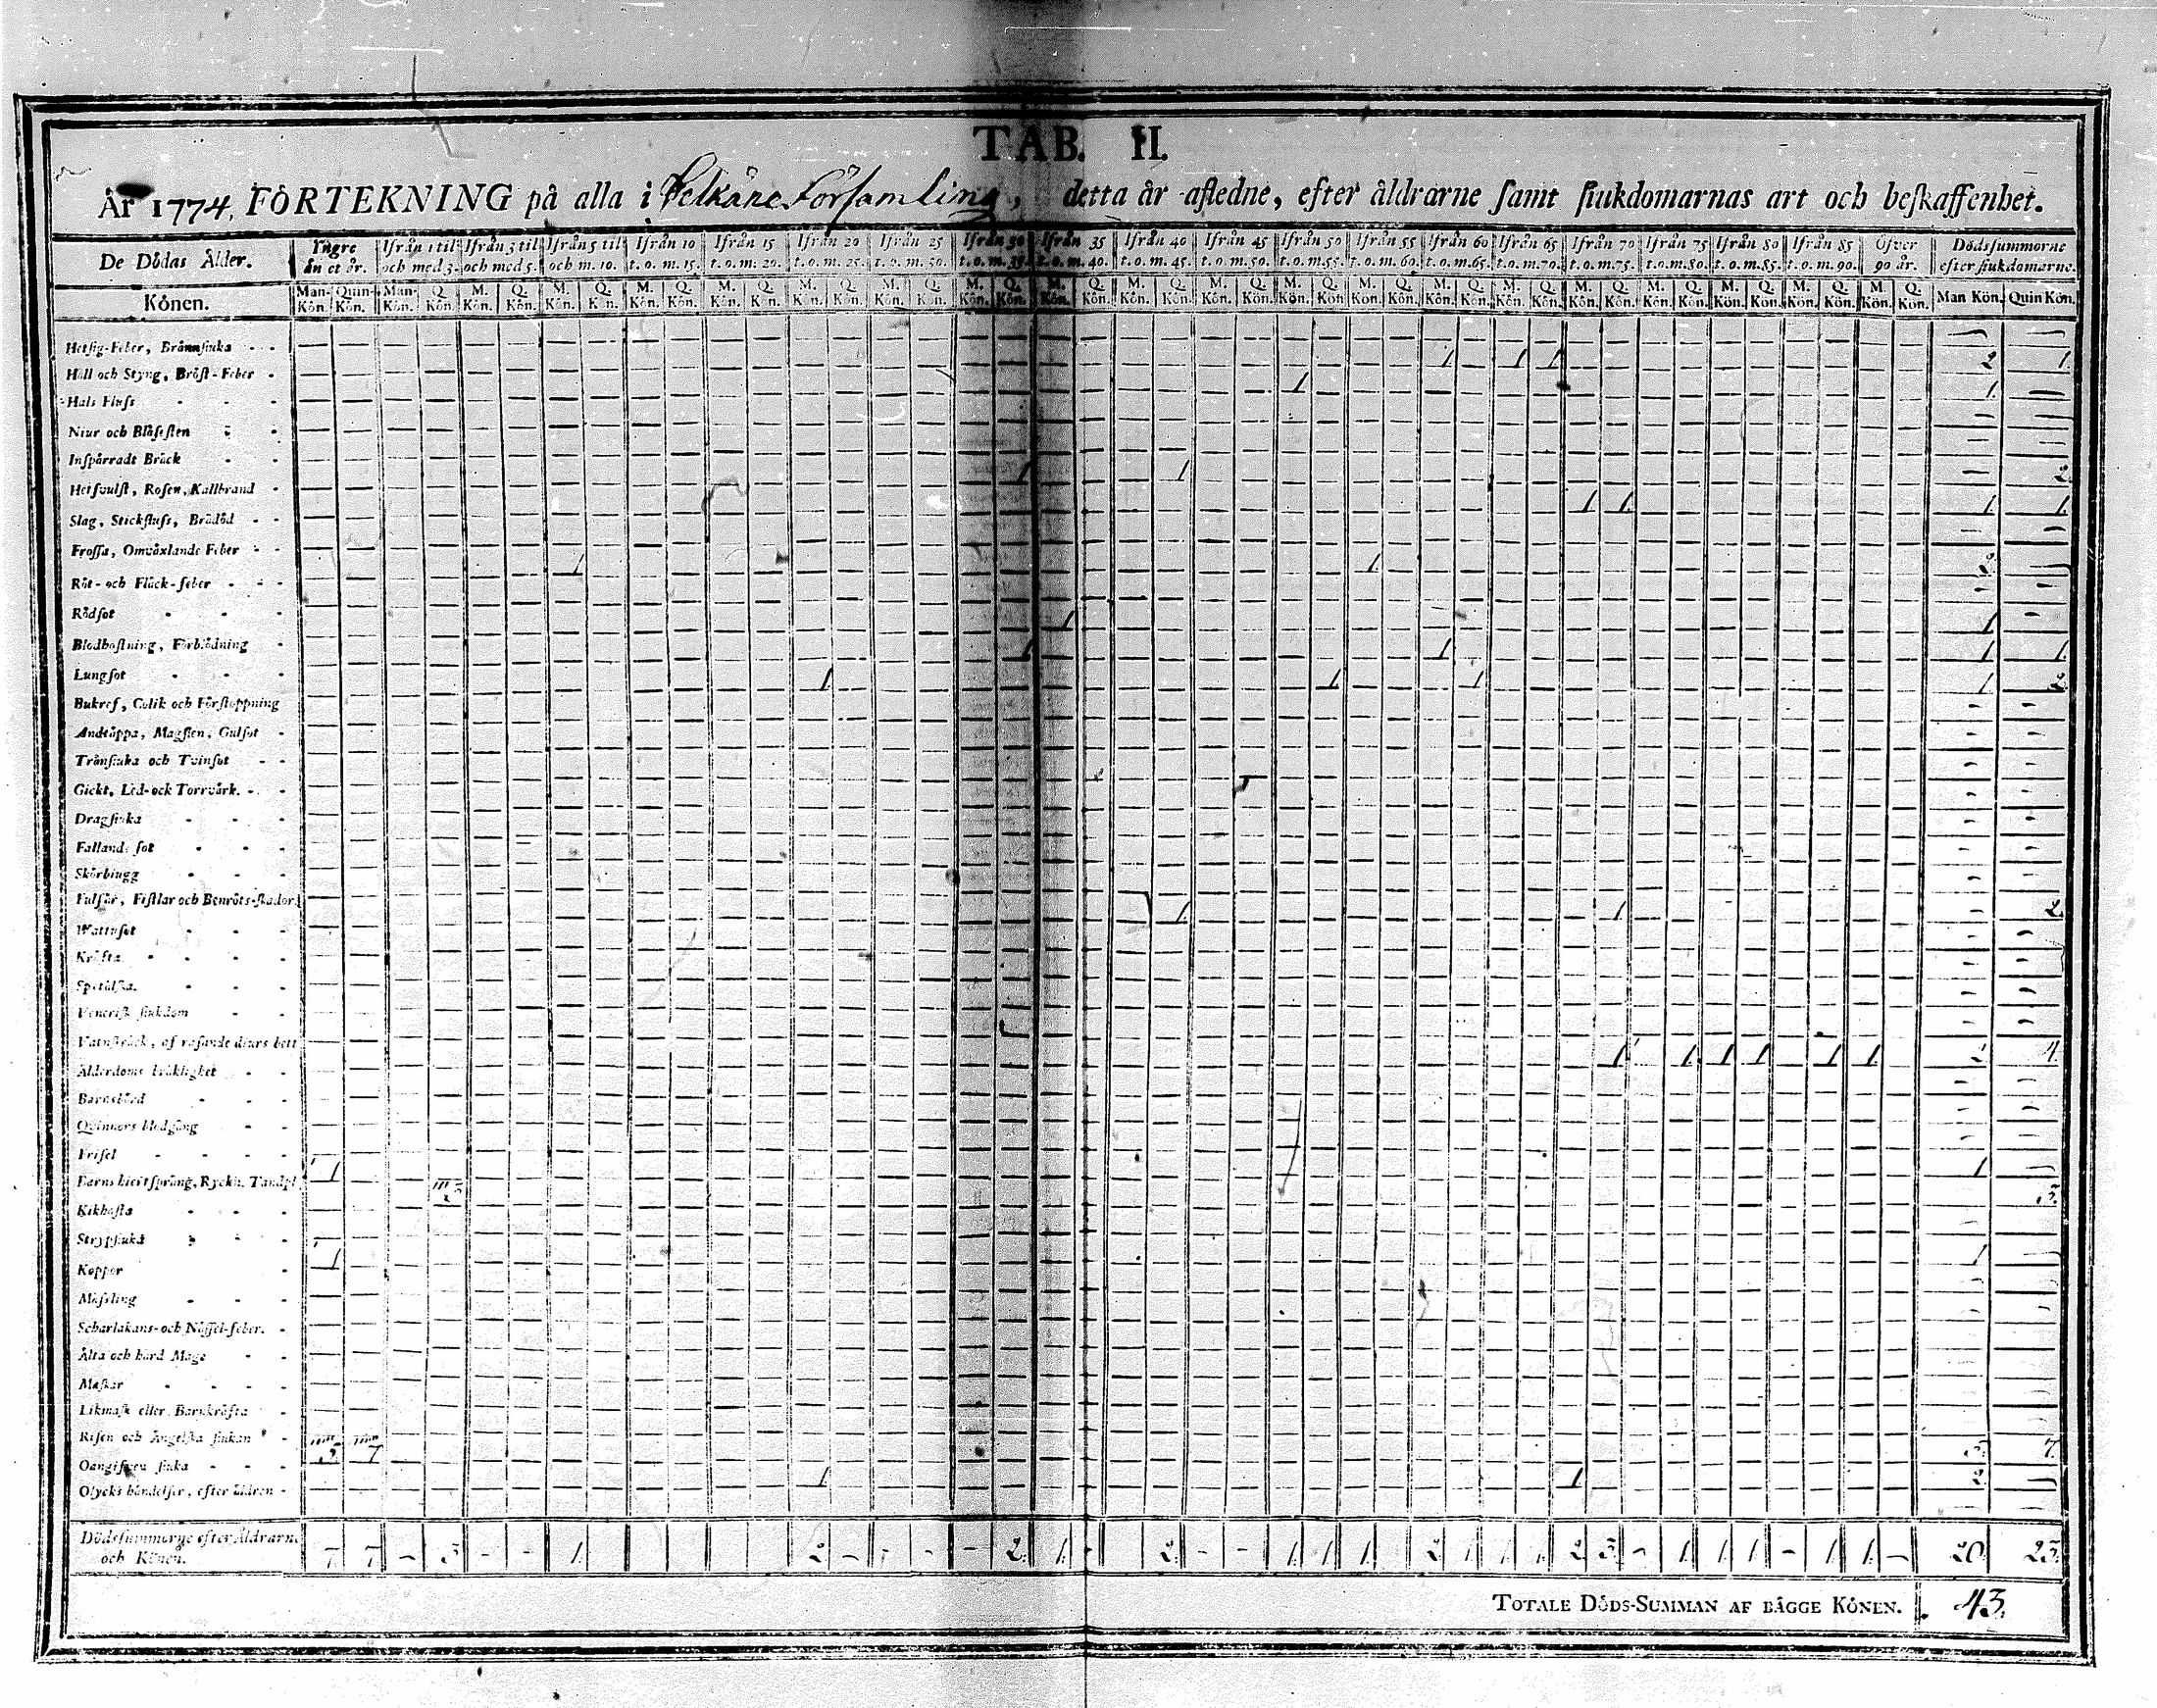 TAB. II.
År 1774. FÖRTEKNING på alla i Pelkäne Församling, detta år afledne, efter åldrarne samt siukdomarnas art och beskaffenhet.
De Dödas Ålder. Yngre än et år. Ifrån 1 til och med 3. Ifrån 3 til och med 5. Ifrån 5 til och m. 10. Ifrån 10 t. o. m. 15. Ifrån 15 t. o. m. 20. Ifrån 20 t. o. m. 25. Ifrån 25 t. o. m. 30. Ifrån 30 t. o. m. 35. Ifrån 35 t. o. m. 40. Ifrån 40 t. o. m. 45. Ifrån 45 t. o. m. 50. Ifrån 50 t. o. m. 55. Ifrån 55 t. o. m. 60. Ifrån 60 t. o. m. 65. Ifrån 65 t. o. m. 70. Ifrån 70 t. o. m. 75. Ifrån 75 t. o. m. 80. Ifrån 80 t. o. m. 85. Ifrån 85 t. o. m. 90. Öfver 90 år. Dödssummorne efter siukdomarne.
Könen. Man-Kön. Quin-Kön. Man-Kön. Q. Kön. M. Kön. Q. Kön. M. Kön. Q. Kön. M. Kön. Q. Kön. M. Kön. Q. Kön. M. Kön. Q. Kön. M. Kön. Q. Kön. M. Kön. Q. Kön. M. Kön. Q. Kön. M. Kön. Q. Kön. M. Kön. Q. Kön. M. Kön. Q. Kön. M. Kön. Q. Kön. M. Kön. Q. Kön. M. Kön. Q. Kön. M. Kön. Q. Kön. M. Kön. Q. Kön. M. Kön. Q. Kön. M. Kön. Q. Kön. M. Kön. Q. Kön. Man Kön. Quin Kön.
Hetsig-Feber, Brännsiuka
Håll och Styng, Bröst-Feber 1 1 1 2 1.
Hals Fluss 1 1.
Niur och Blåsesten
Inspärradt Bråck
Hetsvulst, Rosen, Kallbrand 1 1 2.
Slag, Stickfluss, Brådöd 1 1. 1. 1.
Frossa, Omväxlande Feber
Röt- och Fläck-feber 1 1 2.
Rödsot
Blodhostning, Förblödning 1 1
Lungsot 1 1 1 1.
Bukref, Colik och Förstoppning 1 1 1 1. 2.
Andtäppa, Magsten, Gulsot
Trånsiuka och Tvinsot
Gickt, Led- ock Torrvärk.
Dragsiuka
Fallande sot
Skörbiugg
Fulsår, Fistlar och Benröts-skador
Wattusot 1 1 2.
Kräfta
Spetälska.
Venerisk siukdom
Vatuskräck, af rasande diurs bett
Ålderdoms bräklighet 1 1. 1 1 1 1. 2 4.
Barnsbörd
Qvinnors blodgång
Frisel
Barns hiertsprång, Ryckn. Tandpl. 1 1
Kikhosta 3 3.
Strypsiuka
Koppor 1 1
Mässling
Scharlakans- och Nässel-feber.
Älta och hård Mage
Maskar
Likmask eller Barnkräfta
Risen och Ängelska siukan
Oangifven siuka 5 7 5 7.
Olycks händelser, efter äldren 1 1 2.
Dödssummorne efter Åldrarne och Könen. 7 7 - 3 - - 1. 2 - - - - 2. 1. - 2. - - 1. 1 1. 2 1 1. 1. 2 3. - 1. 1 1. - 1. 1. - 20. 23.
TOTALE DÖDS-SUMMAN AF BÄGGE KÖNEN. 43.